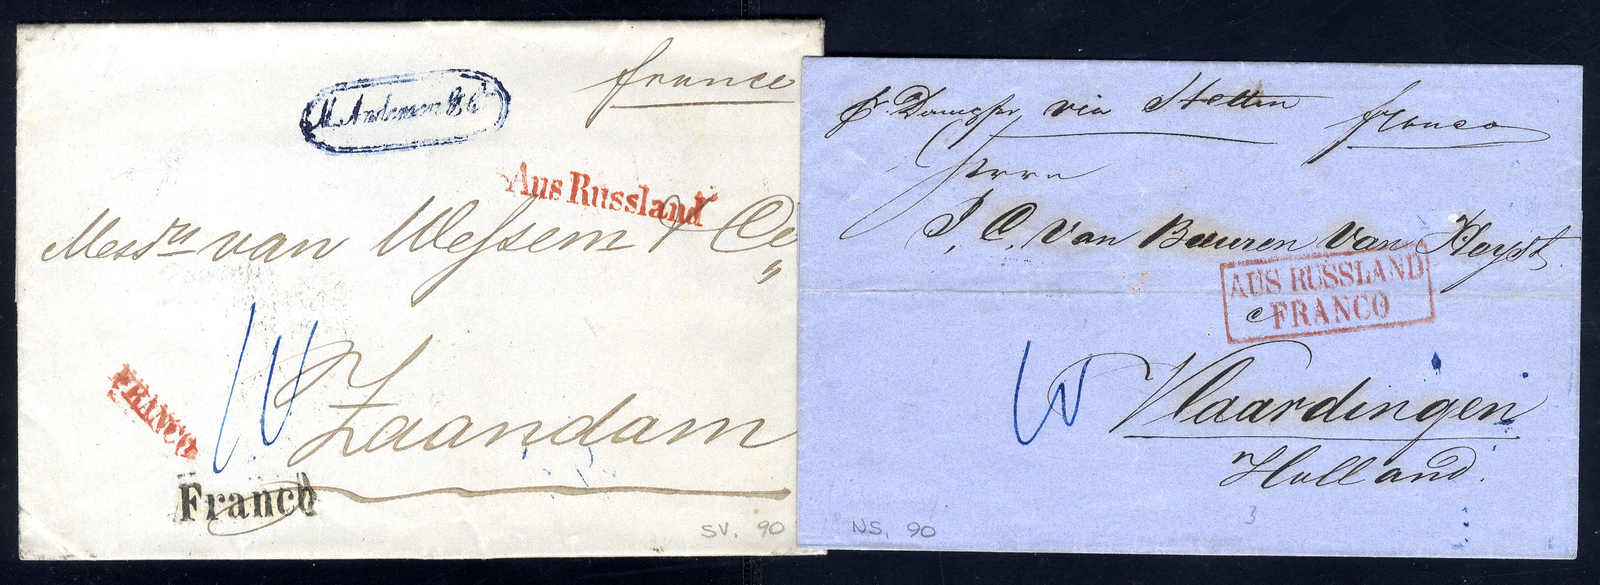 franco
M. Andersen & Co
Aus Russland
Messrs van Wessem & Co
Zaandam
FRANCO
Franco
SV. 90
pr. Dampfer via Stettin
franco
Herrn
J. C. van Buuren van Heyst.
AUS RUSSLAND
FRANCO
Vlaardingen
Holland.
3
NS. 90